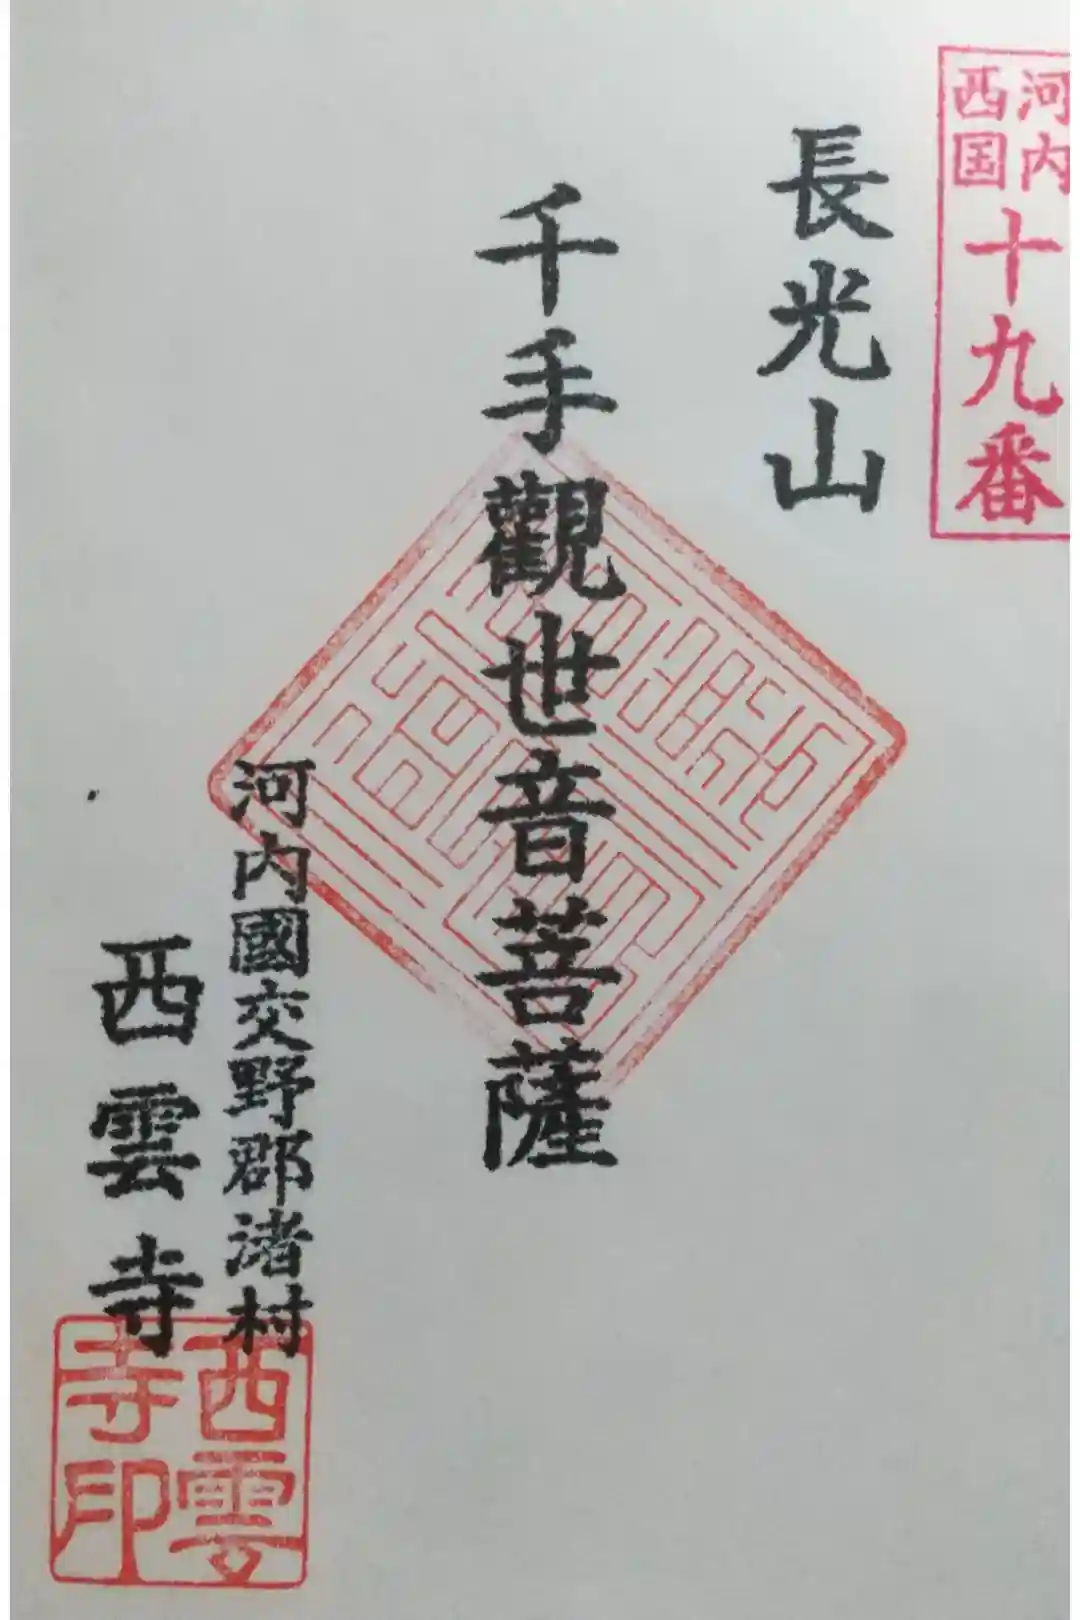 河内
西国
十九番
長光山
千手觀世音菩薩
河内國交野郡渚村
西雲寺
西雲
寺印